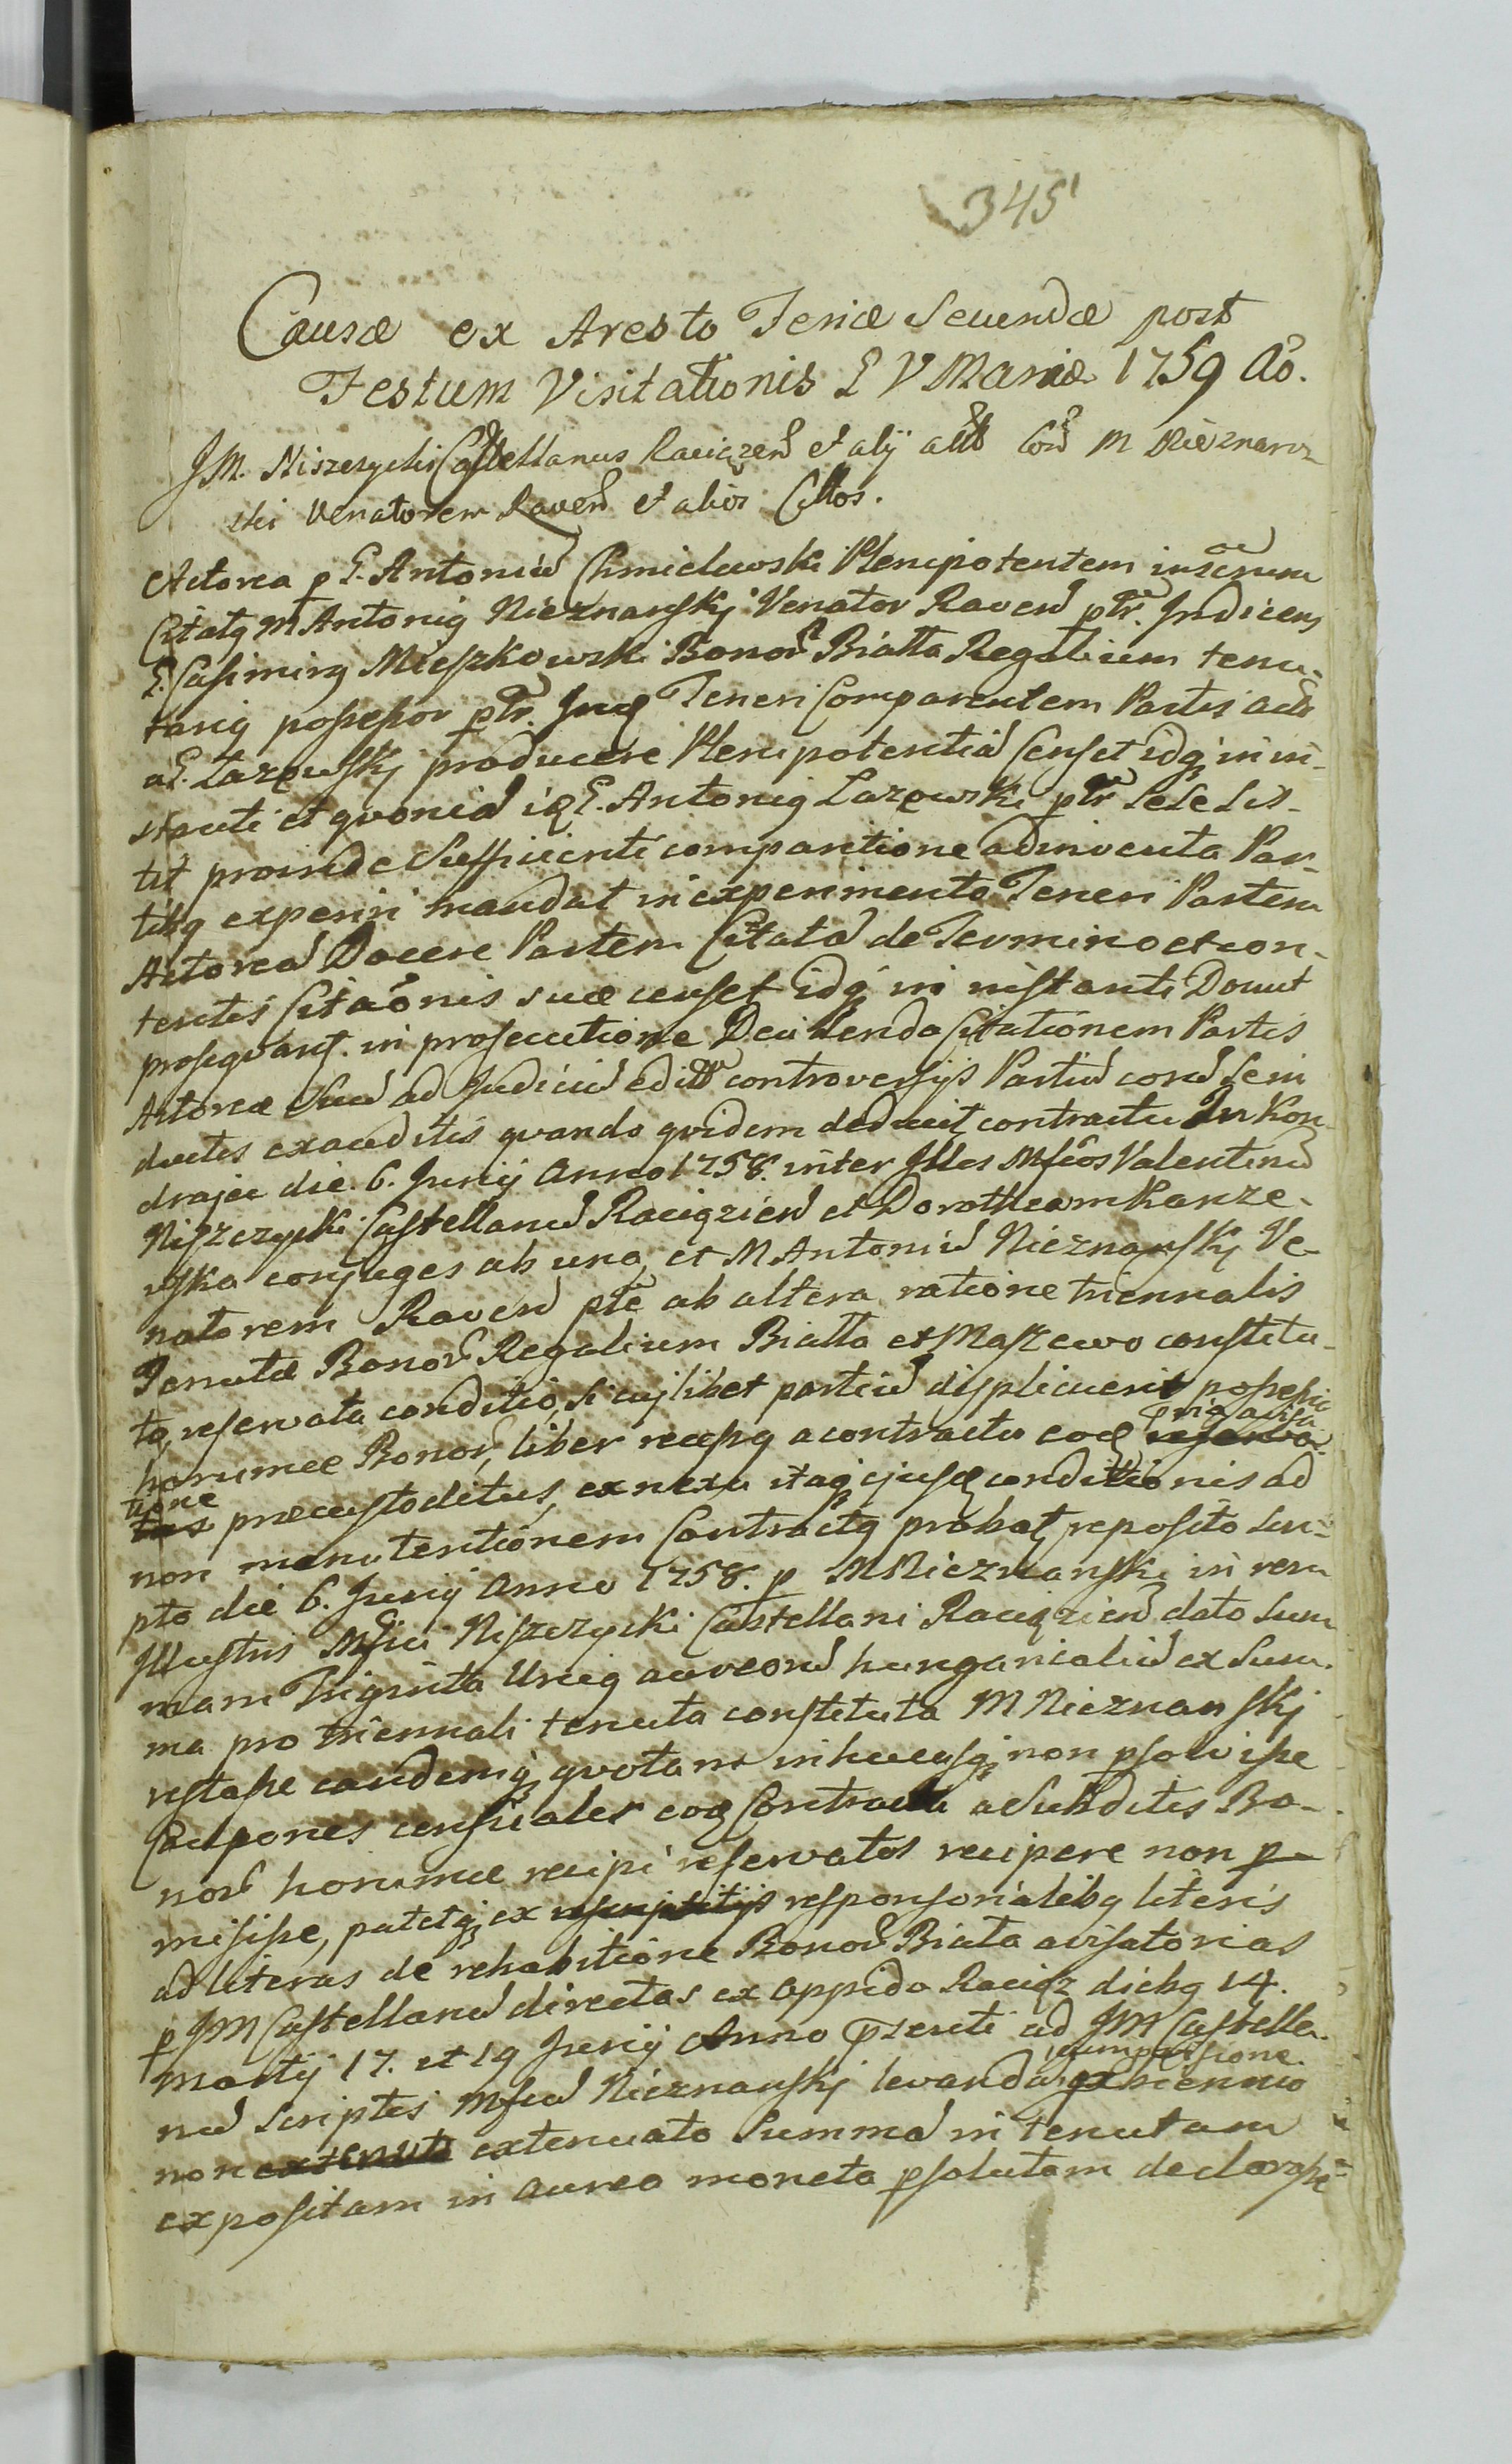 345
Causæ ex Aresto Feriæ Secundæ post
Festum Visitationis B V Mariæ 1759 Aō.
JM. Niszczycki Castellanus Raciązen̄ et alÿ act̄ Con̄ M Nieznans
ski Venatorem Raven̄ et alios Cittos.
Actorea p G. Antoniū Chmielewski Plenipotentem
Citatq M Antoniq Nieznanskj Venator Raven̄ ptr. Judicens
G. Casimirq Mieszkowski Bonor̄ Białła Regalium tenu-
tariq possessor ptr. Jud Teneri Comparentem Partis act
a G. Łazowskj producere Plenipotentiā Censet idq in in-
stanti et qvoniā iq G. Antoniq Łazowski ptr sese sis-
tit proinde Sufficienti comparitione adinventa Par-
tibq experiri mandat in experimento Teneri Partem
Actoreā Docere Partem Citatā de Termino et con-
tentis Citaōnis suæ censet idq in instanti Docuit
proseqvant. in prosecutione Decidenda Citationem Partis
Actoreæ Suā ad Judiciū edit controversijs Partiū corā Se in
ductis exauditis qvando qvidem deducit contractu In Kon-
drajec die. 6. Junij Anno 1758. inter Illes Mficos Valentinū
Niszczycki Castellanū Raciązien̄ et Dorotheam Karze-
wska conjuges ab una, et M Antoniū Nieznanskj Ve-
natorem Raven̄ pte ab altera ratione triennalis
Tenutæ Bonor̄ Regalium Białła et Maszewo constitu-
to, reservata conditio, si cujlibet partiū displicuerit possessio
horumce Bonor̄, liber recessq a contractu eod præavisa
tione præcustoditus, ex nexu itaq ejusd conditionis ad
non manutentionem Contractq probat, reposito scri-
pto die 6. Junij Anno 1758. p M Nieznanski in rem
Illustris Mfici Niszczycki Castellani Raciązien̄ dato Sum
mam Triginta Uniq aureorū hungaricaliū ex Sum-
ma pro triennali tenuta constituta M Nieznanskj
restasse eandemq qvotam inhucusq non psolvisse
Capones censuales eoq Contractu a Subditis Bo-
nor̄ horumce recipi reservatos recipere non p
misisse, patetq ex responsorialibq literis
ad literas de rehabitione Bonor̄ Biała avisatorias
p JM Castellanū directas ex oppido Raciąz diebq 14.
Martij 17. et 19 Junij Anno p̄senti ad JM Castella-
nū scriptis Mficū Nieznanskj levandā ex triennio
non extenuato Summā in tenutam
expositam in aurea moneta psolutam declarasse